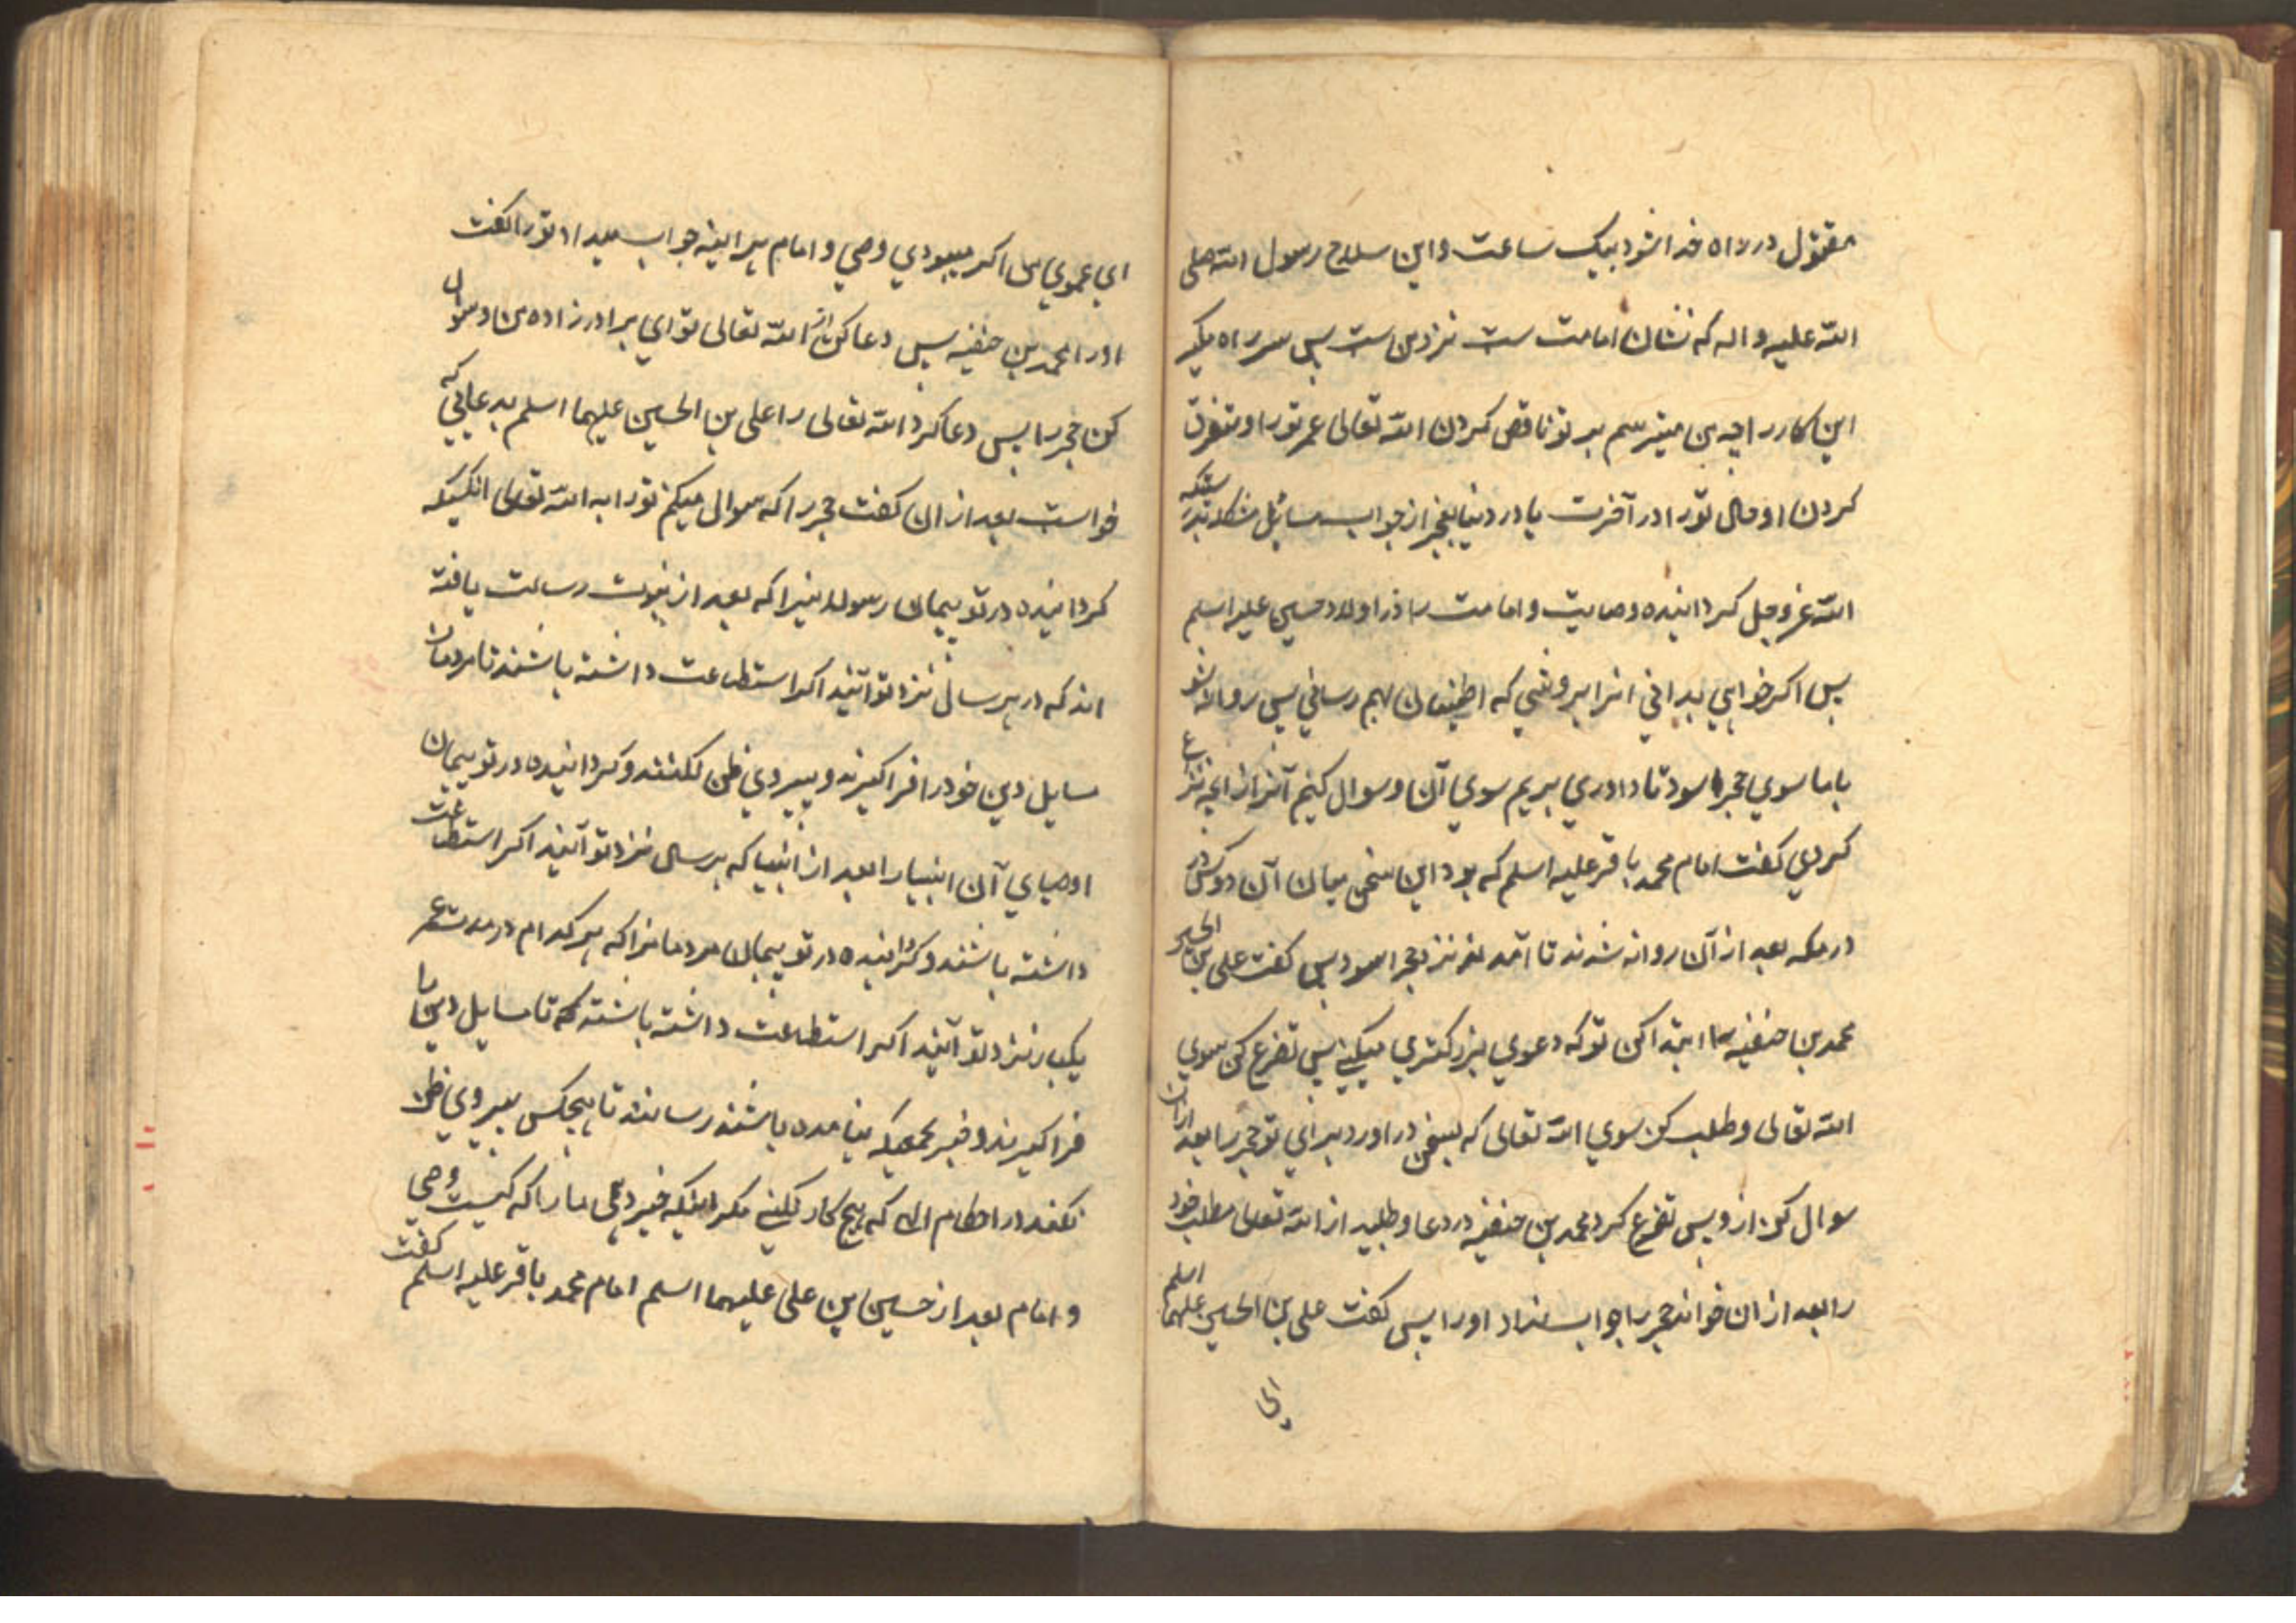 مقتول در راه خدا شود بیک ساعت و این سلاح رسول الله صلی
الله علیه و اله که نشان امامت ست نزد من ست پس سر راه مکیر
این کار را چه من میترسم بر تو ناقص کردن الله تعالی عمر تو را و متفرق
کردن او حال تو را در آخرت یا در دنیا بعجز از جواب مسائل مشکله بدرستیکه
الله عز و جل کردانیده وصایت و امامت را در اولاد حسین علیه اسلم
پس اکر خواهی بدانی انرا بروشی که اطمینان بهم رسانی پس روانه شو
با ما سوی حجر اسود تا داوری بریم سوی آن و سوال کنیم آنرا از انچه نزاع
کردی کفت امام محمد باقر علیه اسلم که بود این سخن میان آن دو کس در
در مکه بعد از آن روانه شدند تا آمدند نزد حجر اسود پس کفت علی بن الحسین
محمد بن حنفیه را ابتدا کن تو که دعوی بزرکتری میکنی پس تضرع کن سوی
الله تعالی و طلب کن سوی الله تعالی که بسخن در اورد برای تو حجر را بعد ازان
سوال کن ازو پس تضرع کرد محمد بن حنفیه در دعا و طلبید از الله تعالی مطلب خود
را بعد ازان خواند حجر را جواب نداد او را پس کفت علی بن الحسین علیهما اسلم
ای عموی من اکر میبودی وصی و امام هر اینه جواب میداد تو را کفت
او را محمد بن حنفیه پس دعا کن از الله تعالی تو ای برادرزاده من و سوال
کن حجر را پس دعا کرد الله تعالی را علی بن الحسین علیهما اسلم بدعایی که
خواست بعد از ان کفت حجر را که سوال میکنم تو را به الله تعالی انکسیکه
کردانیده در تو پیمان رسولانیرا که بعد از نبوت رسالت یافته
اند که در هر سال نزد تو آیند اکر استطاعت داشته باشند تا مردمان
مسایل دین خود را فرا کیرند و پیروی ظن نکنند و کردانیده در تو پیمان
اوصیای آن انبیا را بعد از انبیا که هر سال نزد تو آیند اکر استطاعت
داشته باشند و کردانیده در تو پیمان مردمانرا که هر کدام در مدت عمر
یکبار نزد تو آیند اکر استطاعت داشته باشند که تا مسایل دین را
فرا کیرند و خبر بجمعی که نیامده باشند رسانند تا هیچکس پیروی ظن
نکند در احکام الهی که هیچ کار نکنی مکر اینکه خبر دهی ما را که کیست وصی
و امام بعد از حسین بن علی علیهما اسلم امام محمد باقر علیه اسلم کفت